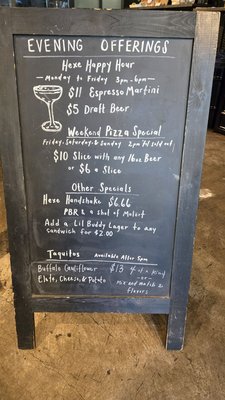 EVENING OFFERINGS
Hexe Happy Hour
Monday to Friday 3pm-6pm
$11 Espresso Martini
$5 Draft Beer
Weekend Pizza Special
Friday, Saturday & Sunday 2pm 'til sold out
$10 Slice with any 16oz Beer
or $6 a Slice
Other Specials
Hexe Handshake $6.66
PBR & a shot of Malört
Add a Lil Buddy Lager to any
sandwich for $2.00
Taquitos Available After 5pm
Buffalo Cauliflower $13 4 of a kind
- or -
Elote, Cheese, & Potato
mix and match 2
flavors